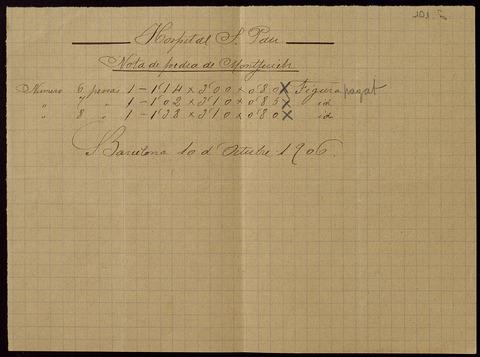 Hospital S. Pau
Nota de pedra de Montjuich
Numero 6 pesas 1 - 1'14 × 3'00 × 0'80 X Figura pagat
" 7 " 1 - 1'02 × 3'10 × 0'85 X id
" 8 " 1 - 1'38 × 3'10 × 0'80 X id
Barcelona 10 d' Octubre 1906.